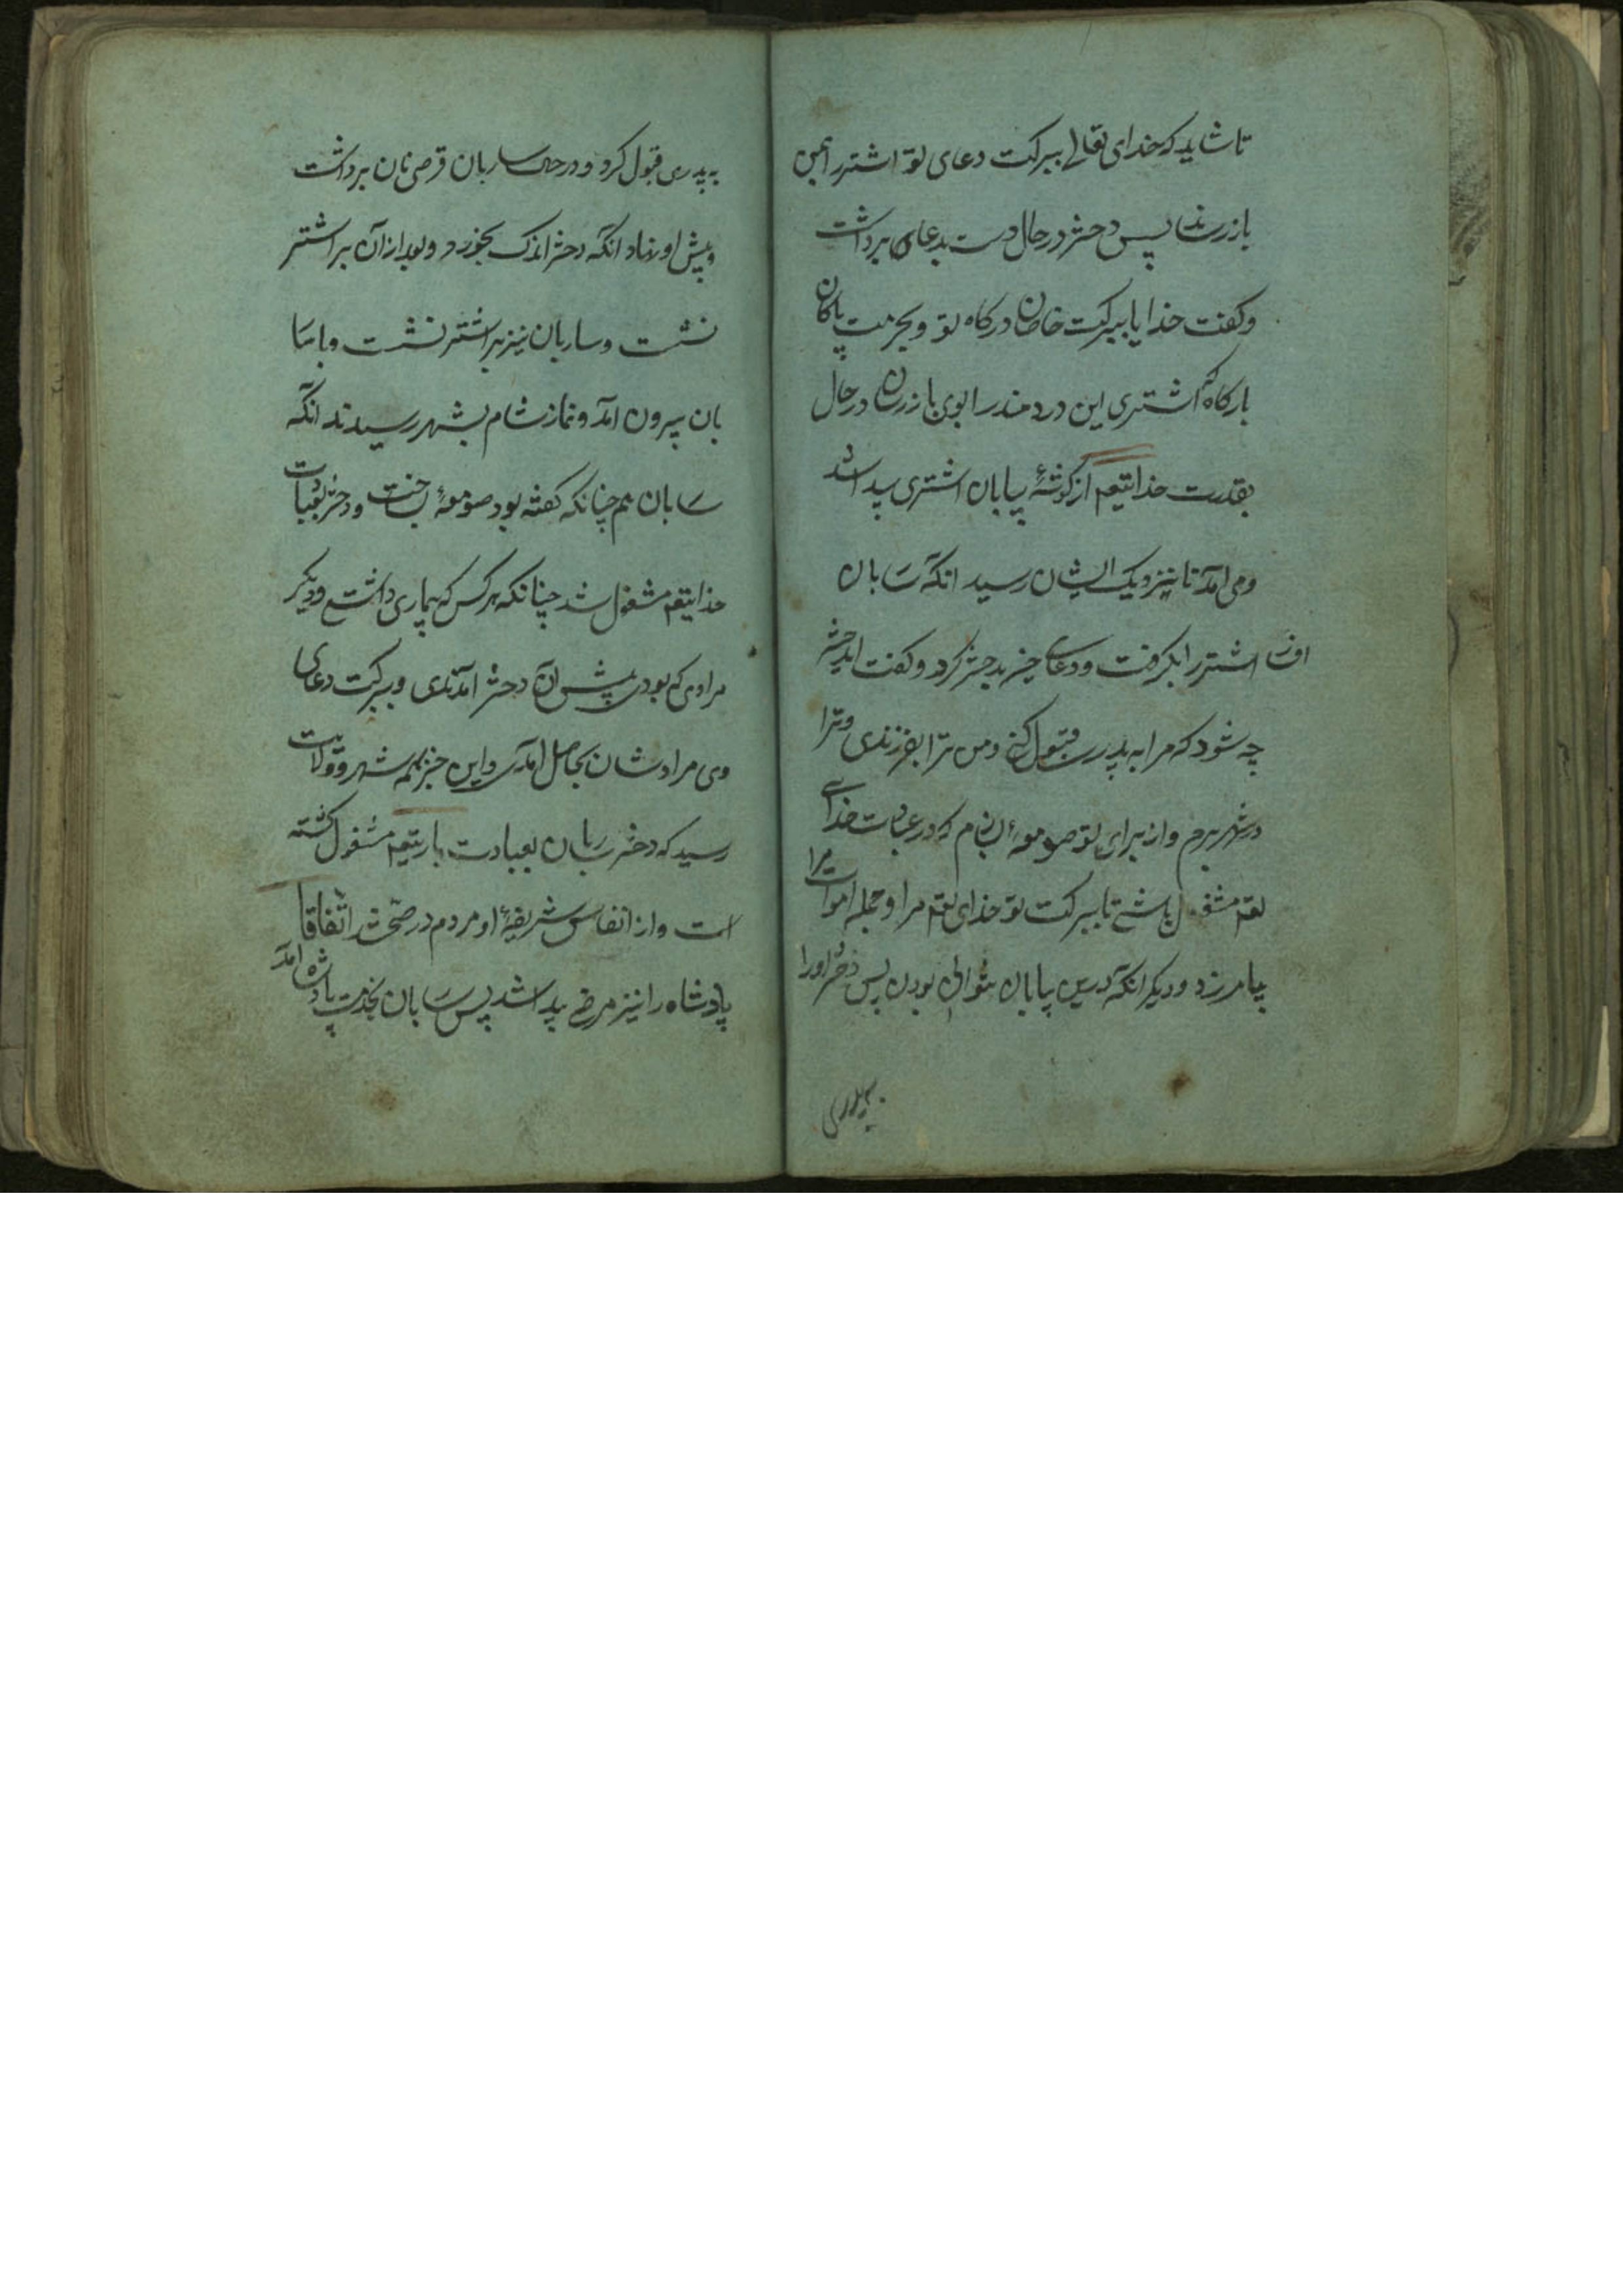 تا شاید که خدای تعالی ببرکت دعای تو اشتر را بمن
باز رساند پس دختر در حال دست بدعای برداشت
و کفت خدایا ببرکت خاصان درکاه تو و بحرمت پاکان
بارکاه که اشتری این دردمند را بوی باز رسان در حال
بقدرت خدایتعم از کوشهٔ بیابان اشتری پیدا شد
و می آمد تا نیزدیک ایشان رسید انکه ساربان
اشتر را بکرفت و دعای خیر بدختر کرد و کفت ای دختر
چه شود که مرا به پدری قبول کنی و من ترا بفرزندی و ترا
در شهر برم و از برای تو صومعهٔ بسازم که در عبادت خدای
تعم مشغول باشی تا ببرکت تو خدای تعم مرا و جمله اموات مرا
بیامرزد و دیکر انکه درین بیابان نتوانی بودن پس دختر او را
به پدری
به پدری قبول کرد و در حال ساربان قرص نان برداشت
و پیش او نهاد انکه دختر اندک بخورد و بعد از آن بر اشتر
نشست و ساربان نیز بر اشتر نشست و با سا
بان بیرون آمد و نماز شام بشهر رسیدند انکه
سابان هم چنانکه کفته بود صومعهٔ بساخت و دختر بعبادت
خدایتعم مشغول شد چنانکه هر کس که بیماری داشتی و دیکر
مرادی که بودی پیش آن دختر آمدندی و ببرکت دعای
وی مرادشان بحاصل آمدی و این خبر بهمه شهر و ولایت
رسید که دختر سابان بعبادت باریتعم مشغول کشته
است و از انفاس شریفهٔ او مردم در صحتند اتفاقا
پادشاه را نیز مرضی پیدا شد پس سابان بخدمت پادشاه آمد